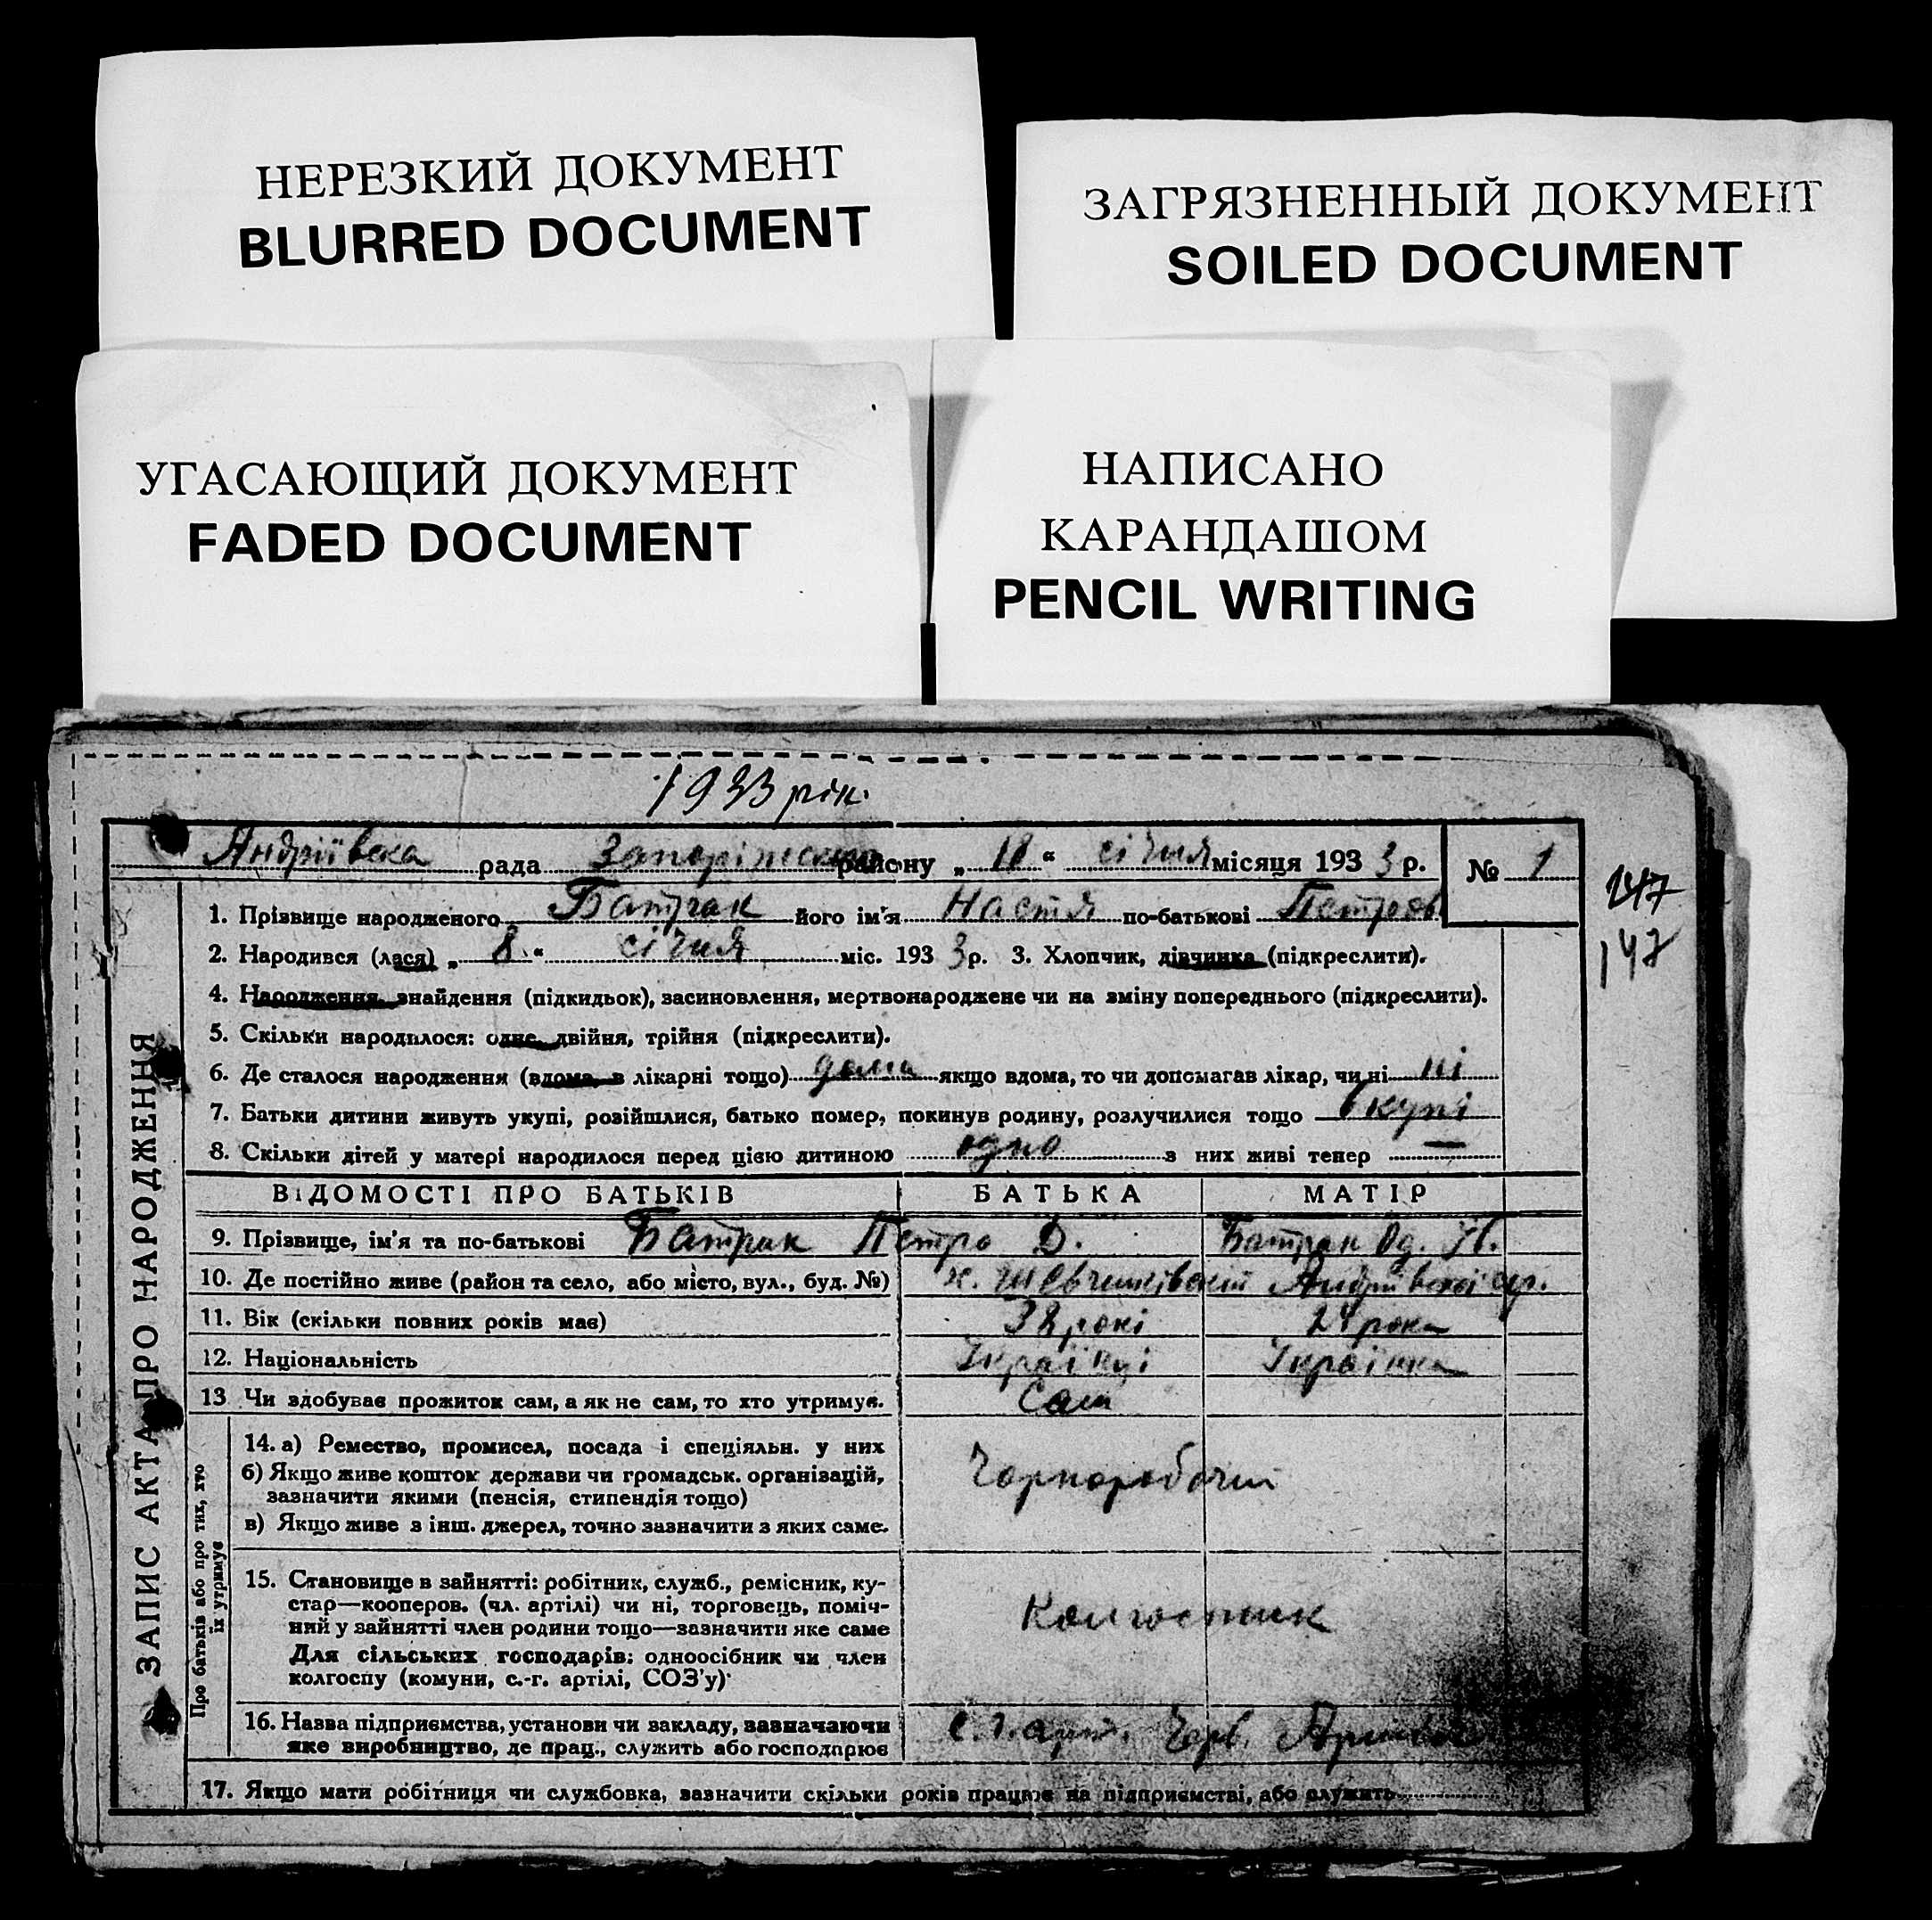 НЕРЕЗКИЙ ДОКУМЕНТ
BLURRED DOCUMENT
ЗАГРЯЗНЕННЫЙ ДОКУМЕНТ
SOILED DOCUMENT
УГАСАЮЩИЙ ДОКУМЕНТ
FADED DOCUMENT
НАПИСАНО
КАРАНДАШОМ
PENCIL WRITING
1933 рік.
Андріївска рада району „ 18 “ січня місяця 1933 р. № 1
147
147
ЗАПИС АКТА ПРО НАРОДЖЕННЯ
1. Прізвище народженого Батрак його ім'я Настя по-батькові Петров
2. Народився (лася) „ 8 “ січня міс. 1933 р. 3. Хлопчик, дівчинка (підкреслити).
4. Народження, знайдення (підкидьок), засиновлення, мертвонароджене чи на зміну попереднього (підкреслити).
5. Скільки народилося: одне, двійня, трійня (підкреслити).
6. Де сталося народження (вдома, в лікарні тощо) дома якщо вдома, то чи допомагав лікар, чи ні ні
7. Батьки дитини живуть укупі, розійшлися, батько помер, покинув родину, розлучилися тощо вкупі
8. Скільки дітей у матері народилося перед цією дитиною одно з них живі тепер —
ВІДОМОСТІ ПРО БАТЬКІВ БАТЬКА МАТІР
9. Прізвище, ім'я та по-батькові Батрак Петро Д. Батрак Од. Н.
10. Де постійно живе (район та село, або місто, вул., буд. №) х. Шевченківский Андріївскої с/р.
11. Вік (скільки повних років має) 38 рокі 24 рока
12. Національність Українці Українка
13 Чи здобуває прожиток сам, а як не сам, то хто утримує. Сам
Про батьків або про тих, хто
їх утримує
14. а) Ремество, промисел, посада і спеціяльн. у них
б) Якщо живе коштом держави чи громадськ. організацій,
зазначити якими (пенсія, стипендія тощо)
в) Якщо живе з інш. джерел, точно зазначити з яких саме.
Чорноробочий
15. Становище в зайнятті: робітник, служб., ремісник, ку-
стар—кооперов. (чл. артілі) чи ні, торговець, поміч-
ний у зайнятті член родини тощо—зазначити яке саме
Для сільських господарів: одноосібник чи член
колгоспу (комуни, с.-г. артілі, СОЗ'у)
Колгоспник
16. Назва підприємства, установи чи закладу, зазначаючи
яке виробництво, де прац., служить або господарює
С.г. арт. Черв.
17. Якщо мати робітниця чи службовка, зазначити скільки років працює на підприємстві, або служить